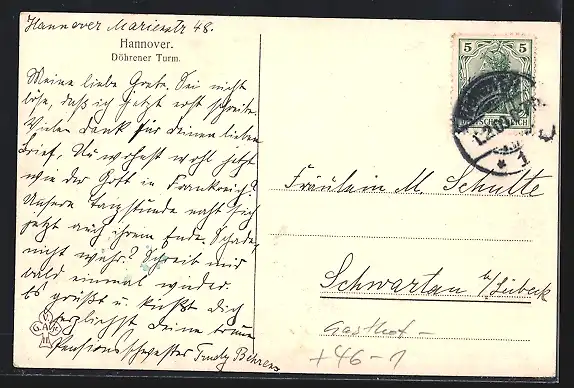 Hannover Marienstr 48.
Hannover.
Döhrener Turm.
Meine liebe Grete. Sei nicht
böse, daß ich jetzt erst schreibe.
Vielen Dank für deinen lieben
Brief. Du wohnst wohl jetzt
wie der Gott in Frankreich?
Unsere Tanzstunde naht sich
jetzt auch ihrem Ende. Schade,
nicht wahr? Schreib mir
bald einmal wieder.
Es grüßt u. küßt dich
herzlichst deine treue
Pensionsschwester Trudy Behrens
5 5
DEUTSCHES REICH
1.2.09
* 1
Fräulein M. Schulte
Schwartau b/Lübeck
Gasthof -
+46-1